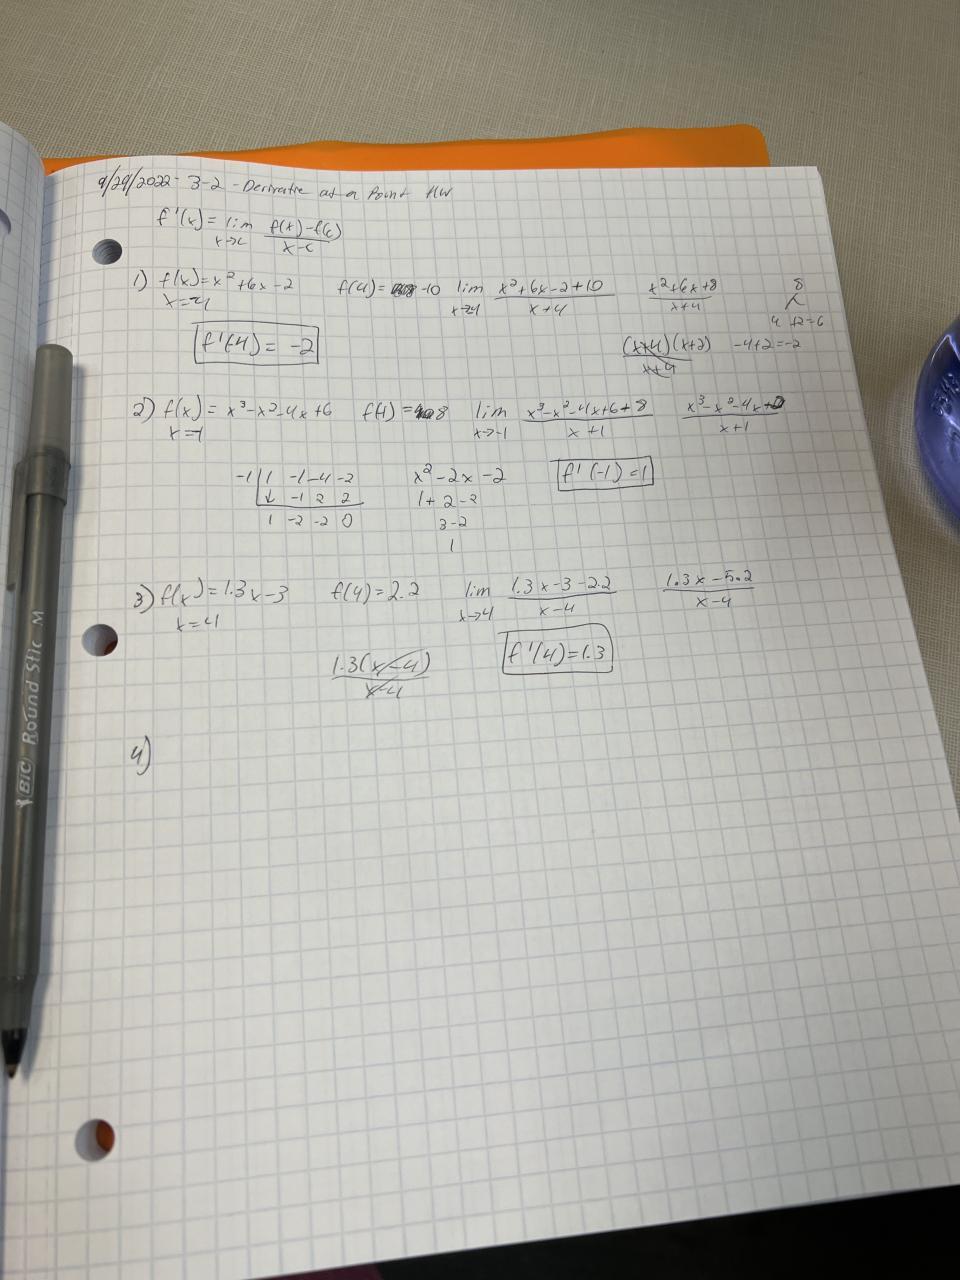 9/29/2022 - 3-2 - Derivative at a Point HW
f'(x) = lim x→c f(x)-f(c) / x-c
1) f(x)=x²+6x-2 f(4)= -10 lim x→-4 x²+6x-2+10 / x+4 x²+6x+8 / x+4 8
x=-4 4 +2=6
f'(-4) = -2 (x+4)(x+2) / x+4 -4+2=-2
2) f(x) = x³-x²-4x+6 f(-1) = 8 lim x→-1 x³-x²-4x+6+8 / x+1 x³-x²-4x / x+1
x=-1
-1 | 1 -1 -4 -2 x²-2x-2 f'(-1)=1
↓ -1 2 2 1+2-2
1 -2 -2 0 3-2
1
3) f(x)=1.3x-3 f(4)=2.2 lim x→4 1.3x-3-2.2 / x-4 1.3x-5.2 / x-4
x=4
1.3(x-4) / x-4 f'(4)=1.3
4)
BIC Round Stic M